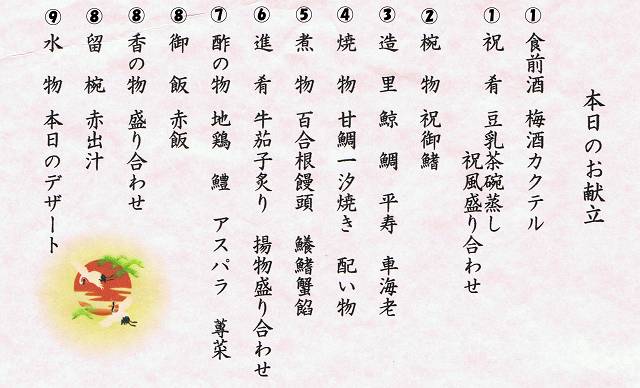 本日のお献立
① 食前酒 梅酒カクテル
① 祝肴 豆乳茶碗蒸し
祝風盛り合わせ
② 椀物 祝御鰭
③ 造里 鯨 鯛 平寿 車海老
④ 焼物 甘鯛一汐焼き 配い物
⑤ 煮物 百合根饅頭 鱶鰭蟹餡
⑥ 進肴 牛茄子炙り 揚物盛り合わせ
⑦ 酢の物 地鶏 鱧 アスパラ 蓴菜
⑧ 御飯 赤飯
⑧ 香の物 盛り合わせ
⑧ 留椀 赤出汁
⑨ 水物 本日のデザート